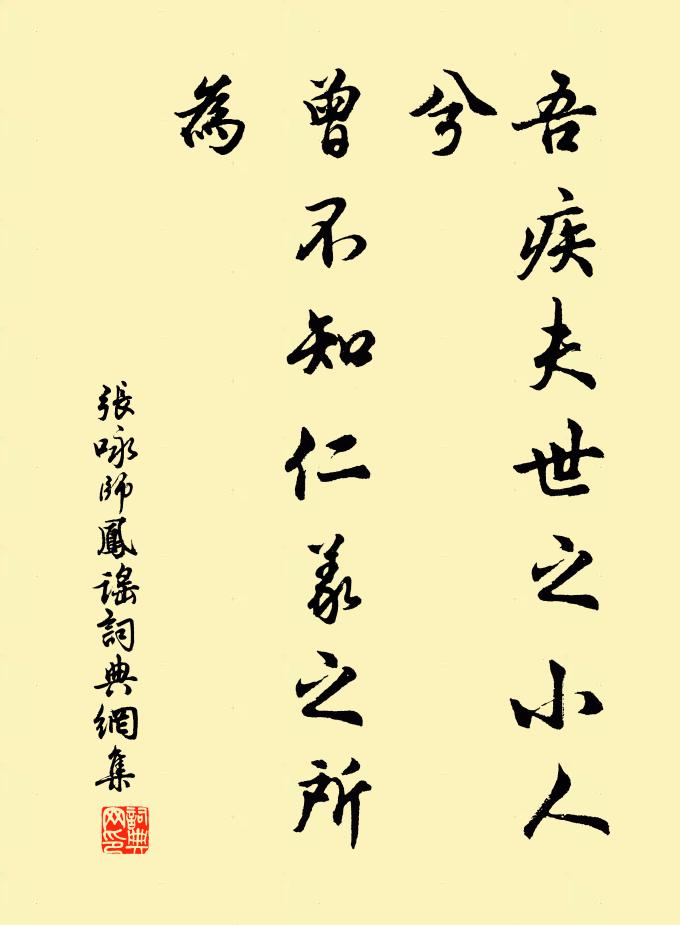 吾疾夫世之小人
兮
曾不知仁義之所
為
張咏師鳳謠詞典網集
詞典
网印